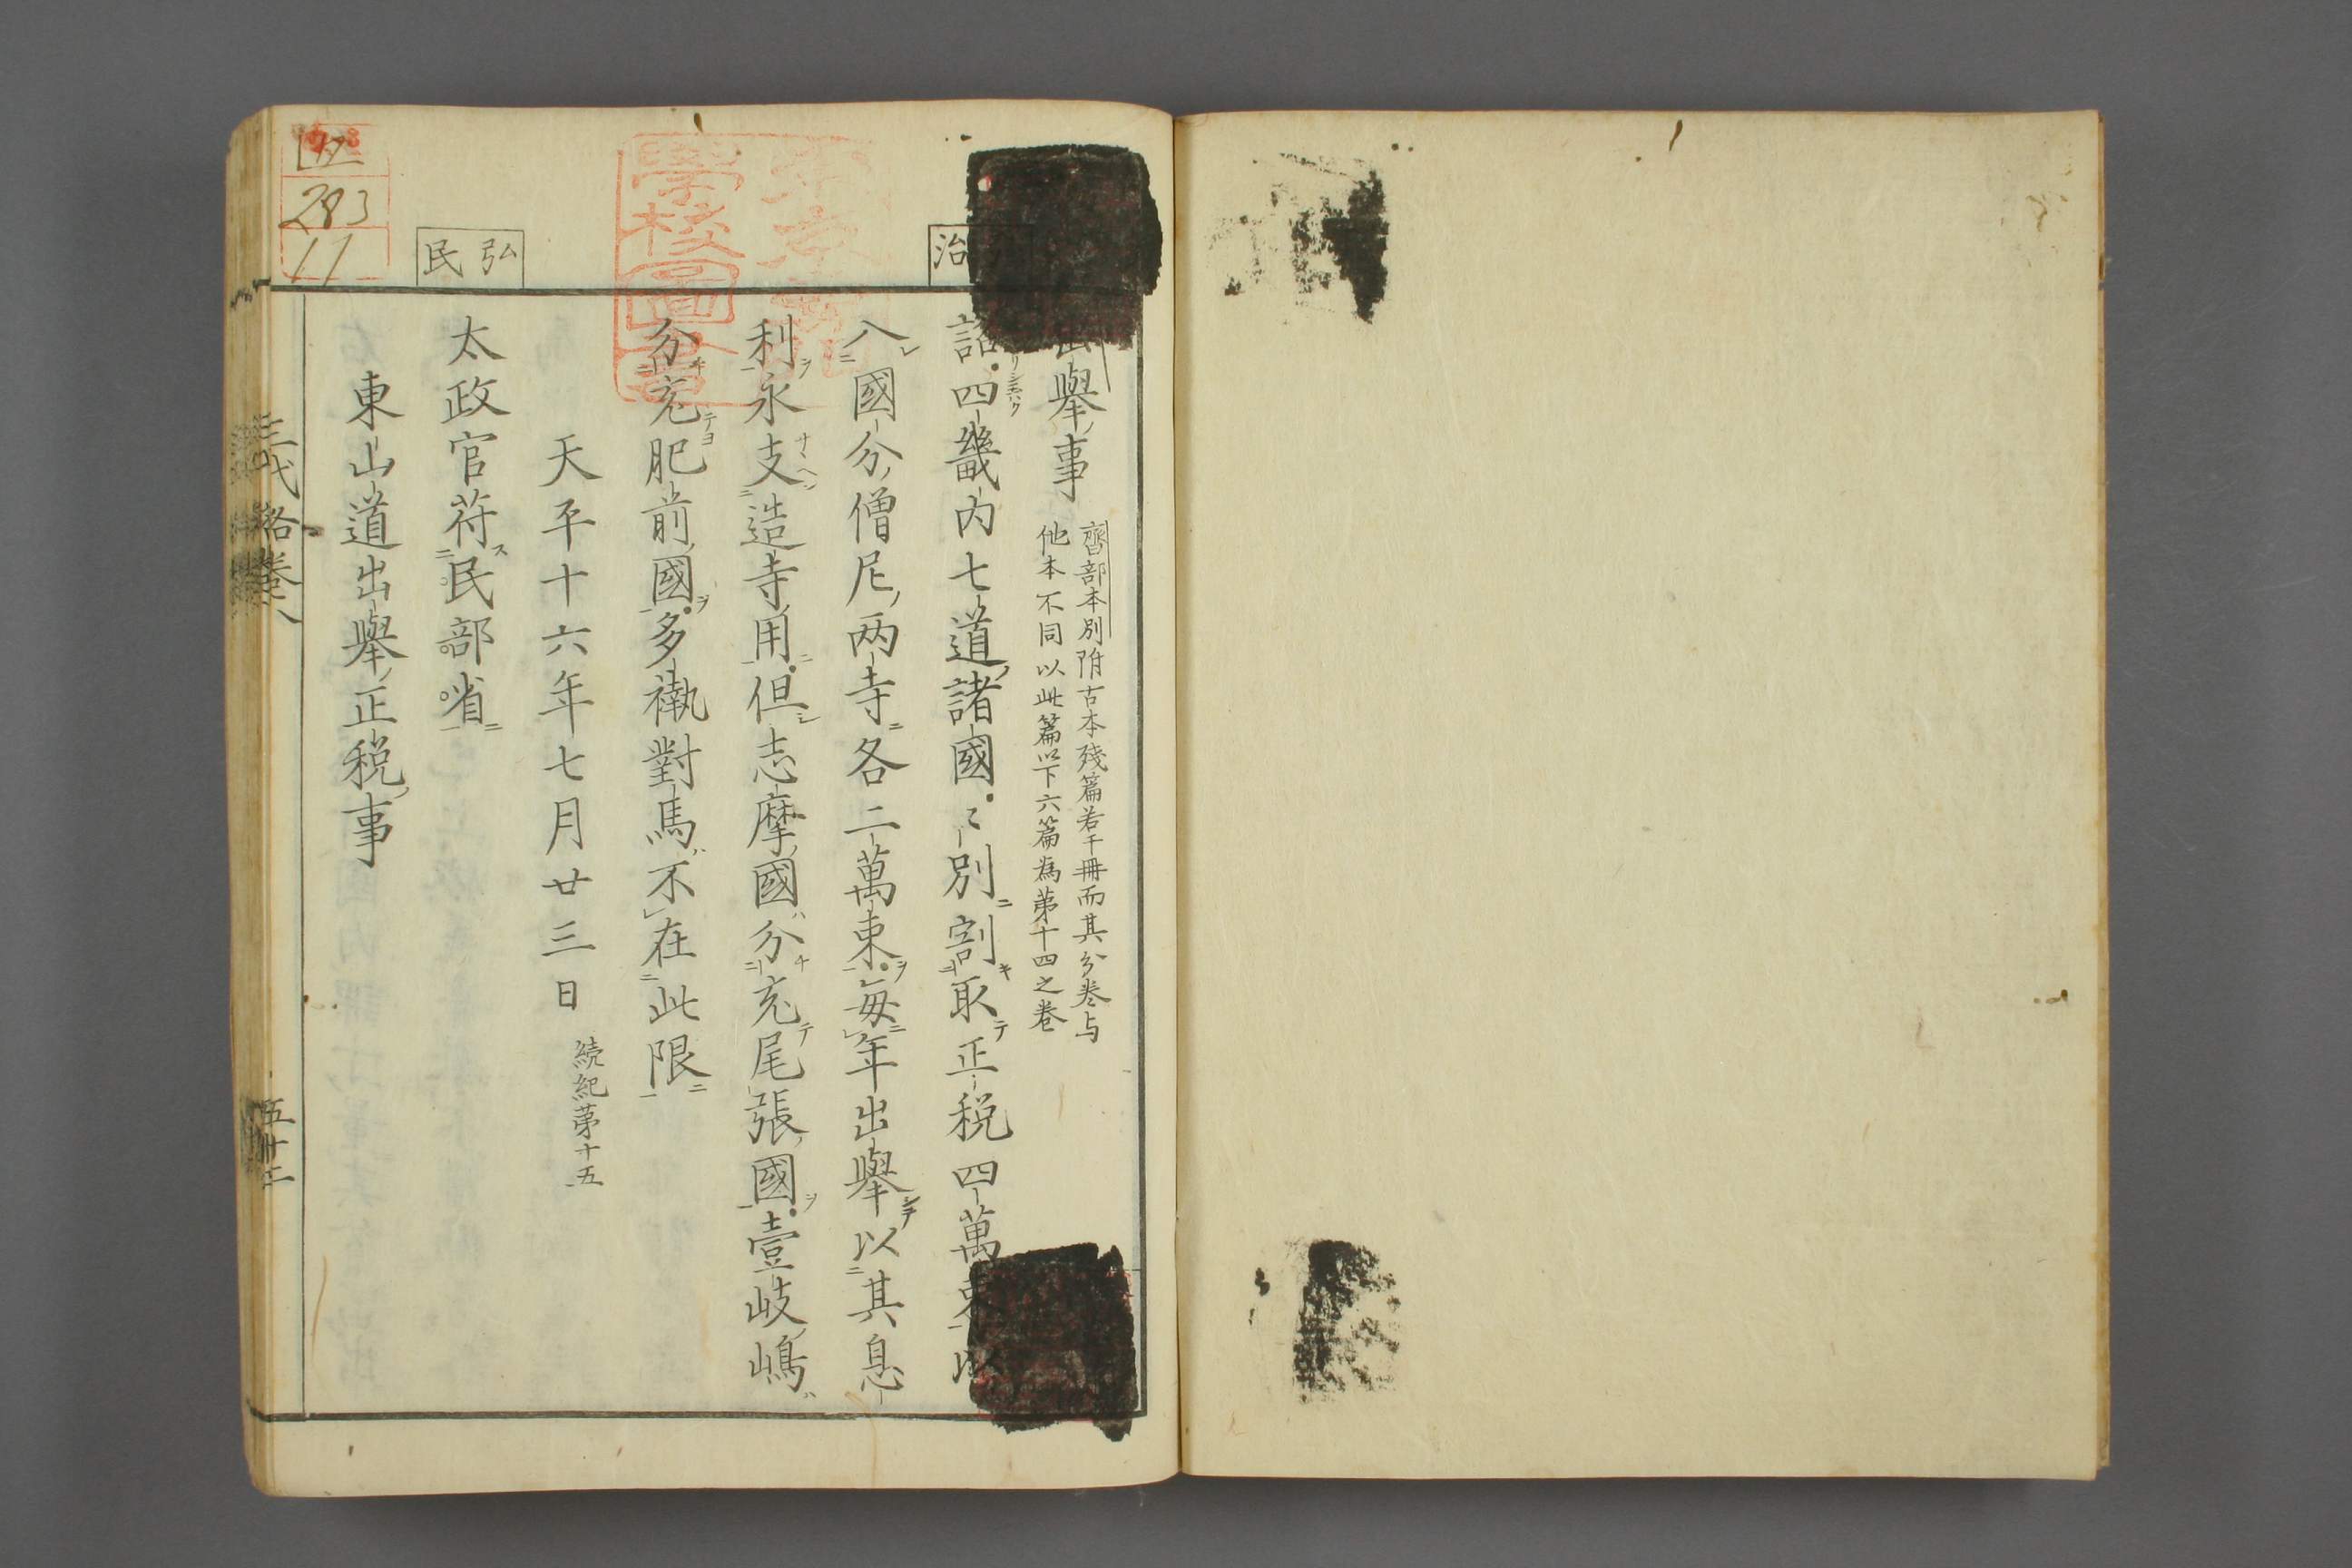 出舉事
齊部本別附古本殘篇若干冊而其分卷与
他本不同以此篇以下六篇為苐十四之卷
治
詔四畿內七道諸國〻別割取正税四萬束以
入國分僧尼两寺各二萬束每年出舉以其息
利永支造寺用但志摩國分充尾張國壹岐嶋
分充肥前國多褹對馬不在此限
天平十六年七月廿三日 続紀苐十五
弘民
太政官苻民部省
東山道出舉正税事
三代格卷八
五十二
283
11
學校圖書